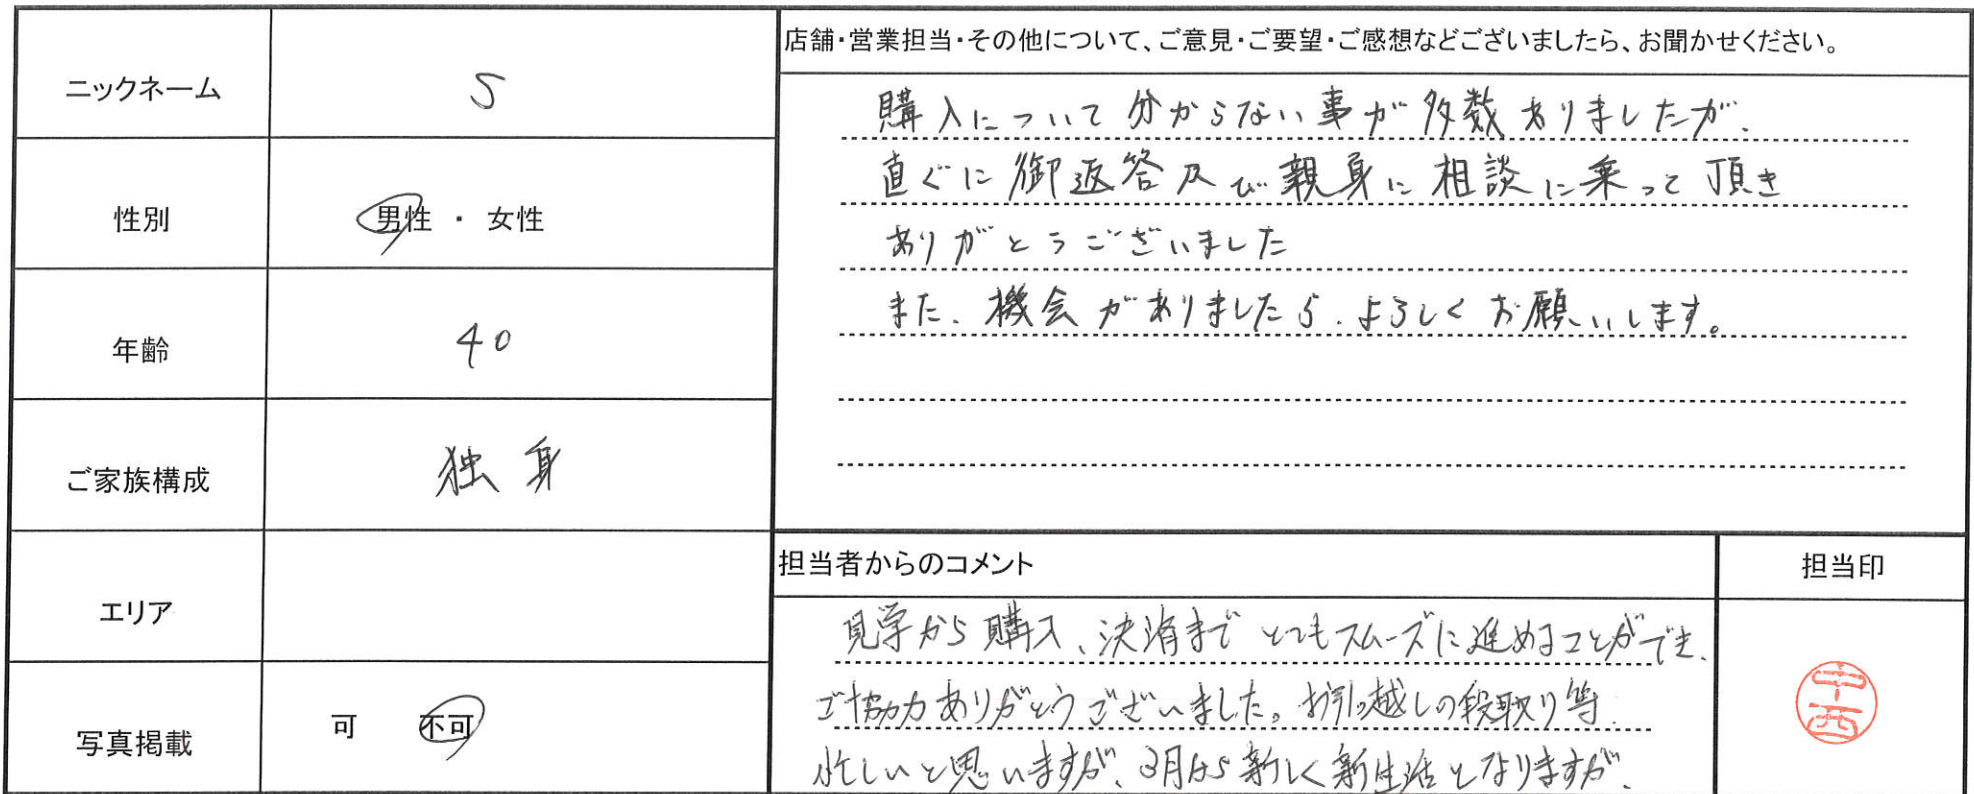 ニックネーム
S
性別
男性 ・ 女性
年齢
40
ご家族構成
独身
エリア
写真掲載
可 不可
店舗・営業担当・その他について、ご意見・ご要望・ご感想などございましたら、お聞かせください。
購入について分からない事が多数ありましたが、
直ぐに御返答及び親身に相談に乗って頂き
ありがとうございました
また、機会がありましたら、よろしくお願いします。
担当者からのコメント
見学から購入、決済までとてもスムーズに進めることができ、
ご協力ありがとうございました。お引っ越しの段取り等
忙しいと思いますが、3月から新しく新生活となりますが、
担当印